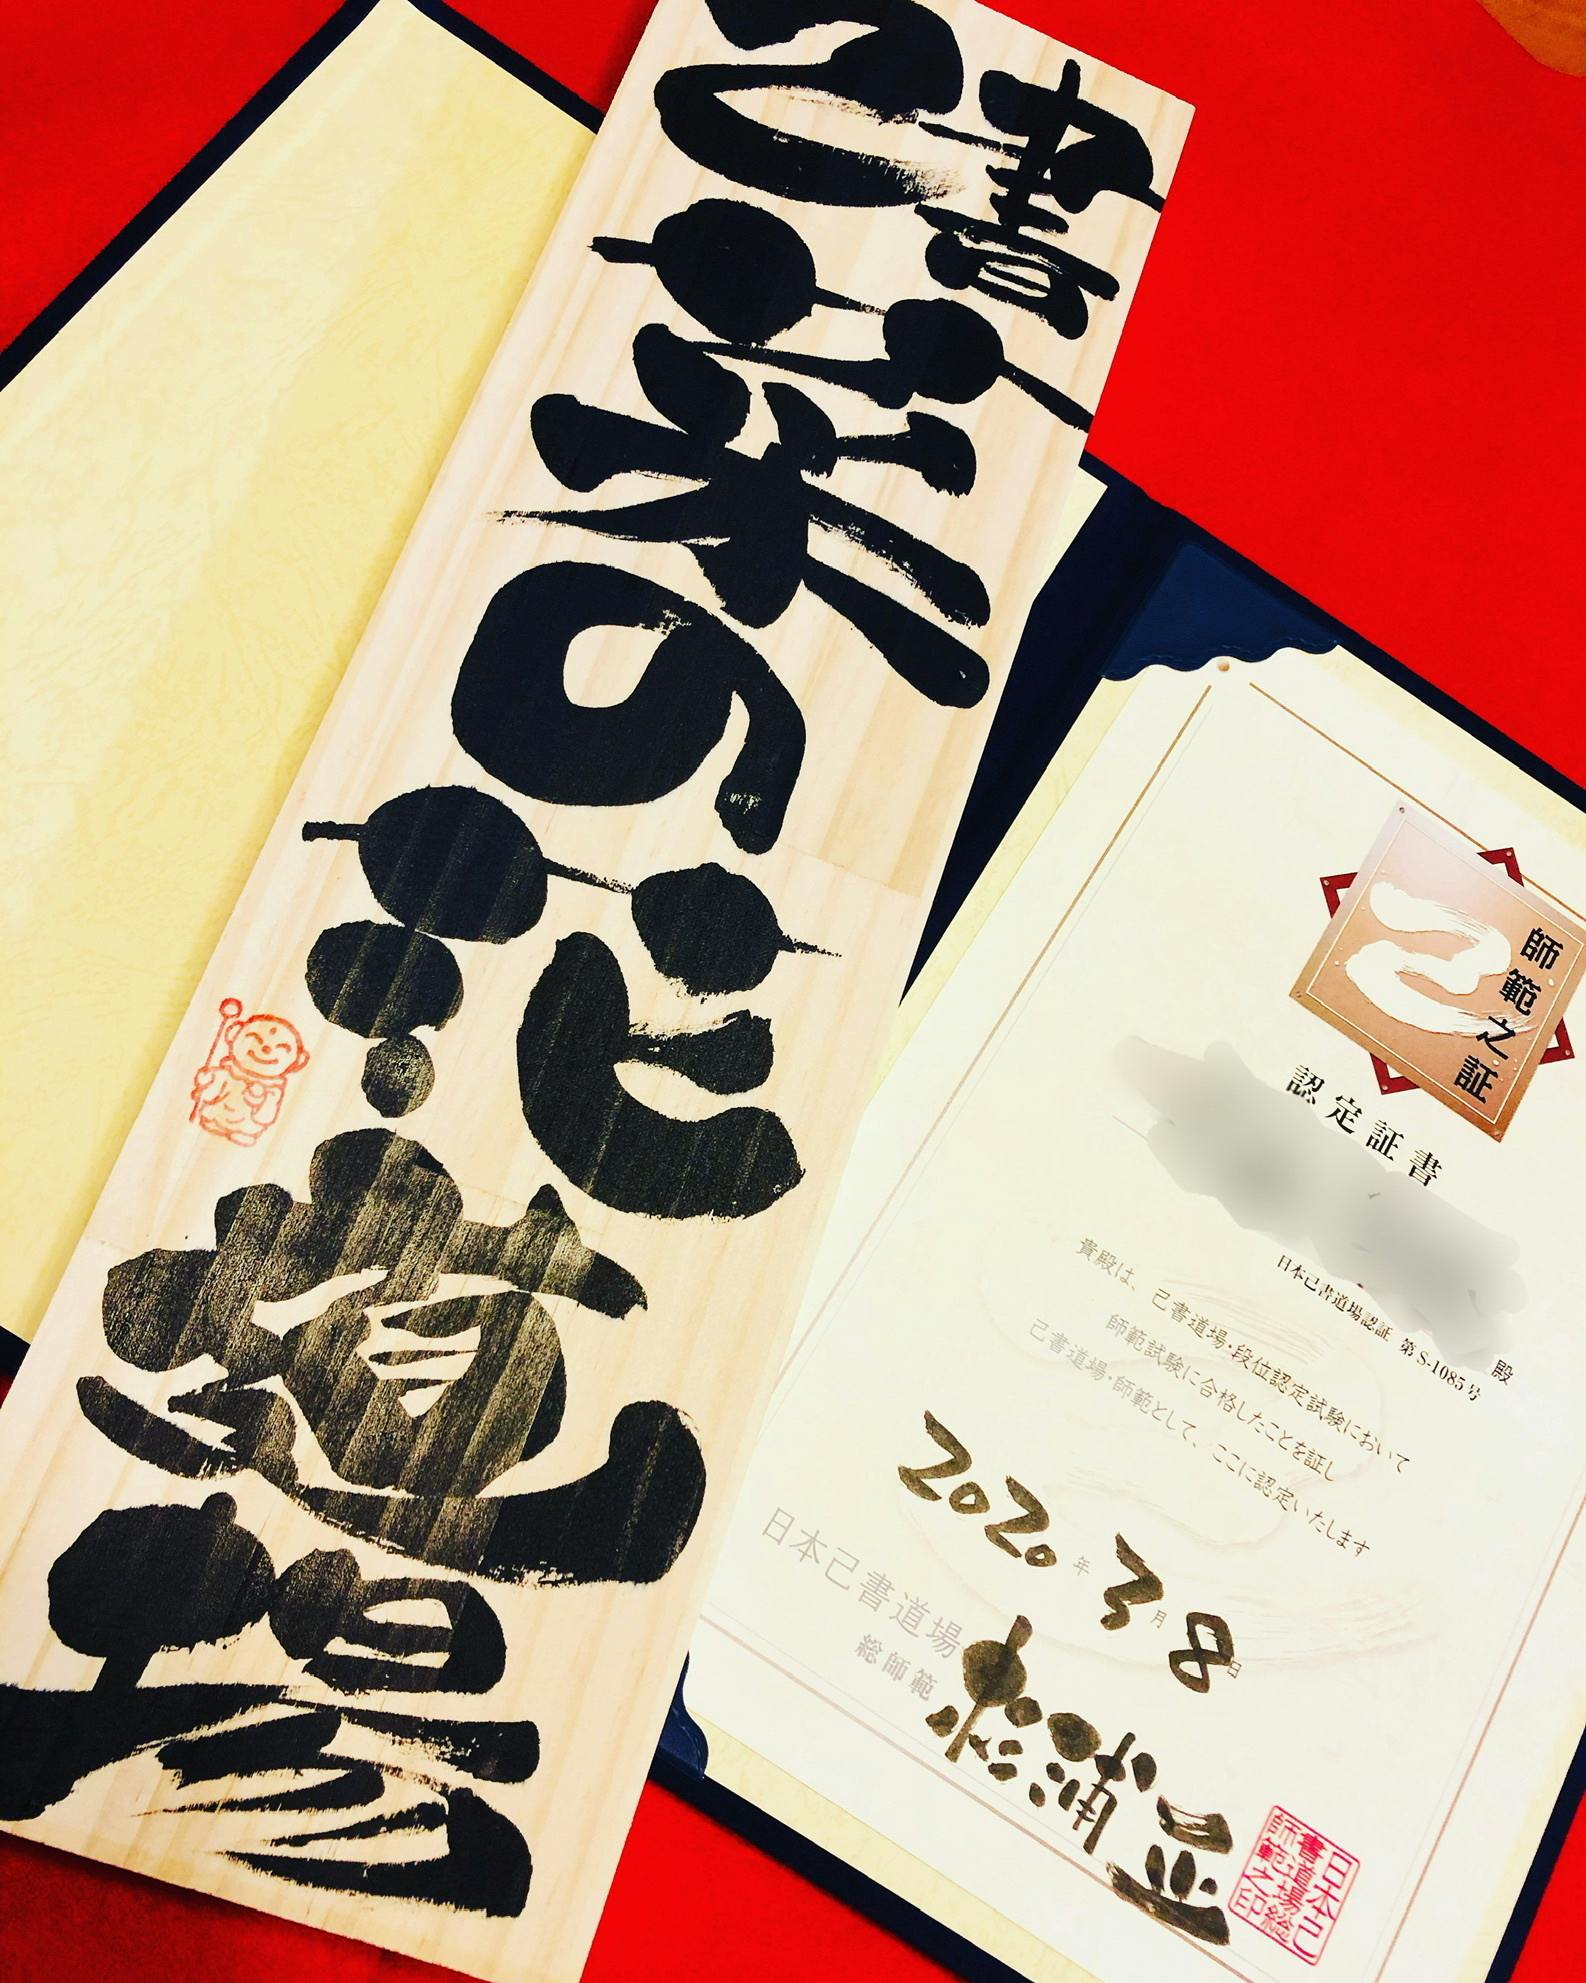 己書
菜の花道場
己
師範之証
認定証書
殿
日本己書道場認証 第S-1085号
貴殿は、己書道場・段位認定試験において
師範試験に合格したことを証し
己書道場・師範として、ここに認定いたします
2020年3月8日
日本己書道場
総師範
杉浦正
日本己
書道場総
師範之印